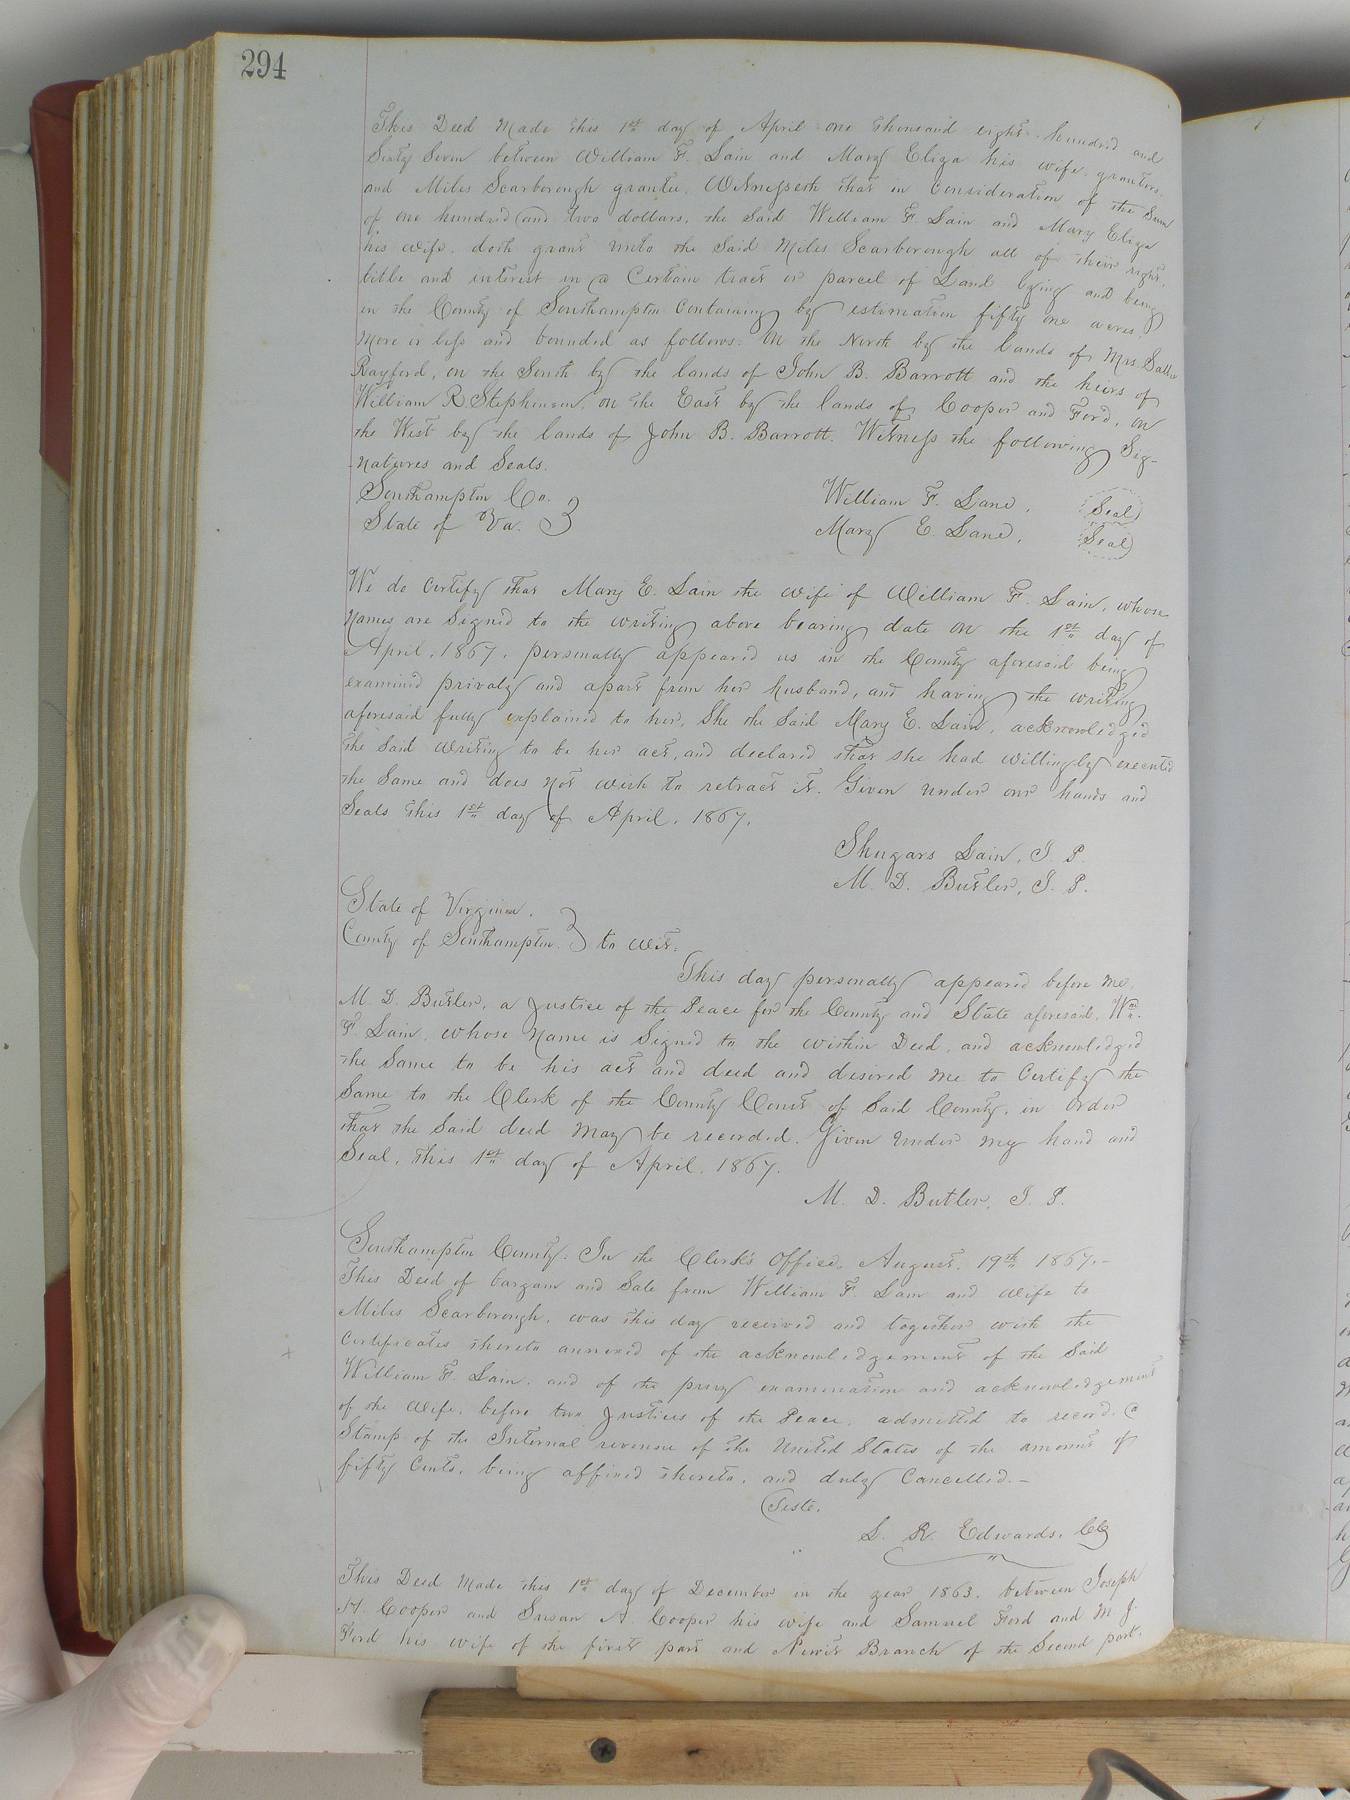 294
This Deed Made this 1st day of April one thousand eight hundred and
Sixty Seven between William F. Lain and Mary Eliza his wife, grantors,
and Miles Scarborough grantee, Witnesseth that in Consideration of the Sum
of one hundred and two dollars, the Said William F. Lain and Mary Eliza
his wife, doth grant unto the Said Miles Scarborough all of their right,
title and interest in a Certain tract or parcel of Land lying and being
in the County of Southampton Containing by estimation fifty one acres
More or less and bounded as follows: On the North by the lands of Mrs. Sallie
Rayford, on the South by the lands of John B. Barrott and the heirs of
William R Stephenson, on the East by the lands of Cooper and Ford, on
the West by the lands of John B. Barrott. Witness the following Sig-
natures and Seals.
Southampton Co. William F. Lane, Seal
State of Va. Mary E. Lane, Seal
We do Certify that Mary E. Lain the wife of William F. Lain, whose
Names are Signed to the writing above bearing date on the 1st day of
April, 1867, personally appeared us in the County aforesaid being
examined privaly and apart from her husband, and having the writing
aforesaid fully explained to her, She the Said Mary E. Lain, acknowledged
the Said Writing to be her act, and declared that she had willingly executed
the Same and does not wish to retract it. Given under our hands and
Seals this 1st day of April, 1867.
Shugars Lain, J. P.
M. D. Butler, J. P.
State of Virginia,
County of Southampton. to wit:
This day personally appeared before me,
M. D. Butler, a Justice of the Peace for the County and State aforesaid, Wm.
F Lain, whose Name is Signed to the within Deed, and acknowledged
the Same to be his act and deed and desired me to Certify the
Same to the Clerk of the County Court of Said County, in order
that the Said deed May be recorded. Given under my hand and
Seal, this 1st day of April, 1867.
M. D. Butler, J. P.
Southampton County: In the Clerk's Office, August, 19th 1867.-
This Deed of bargain and Sale from William F. Lain and wife to
Miles Scarborough, was this day received and together with the
Certificates thereto annexed of the acknowledgement of the Said
William F. Lain, and of the privy examination and acknowledgement
of the wife, before two Justices of the Peace, admitted to record. a
Stamp of the Internal revenue of the United States of the amount of
fifty Cents, being affixed thereto, and duly Cancelled.-
Teste,
L. R. Edwards, Clk
This Deed Made this 1st day of December in the year 1863, between Joseph
H. Cooper and Susan A. Cooper his wife and Samuel Ford and M J.
Ford his wife of the first part and Newit Branch of the Second part,